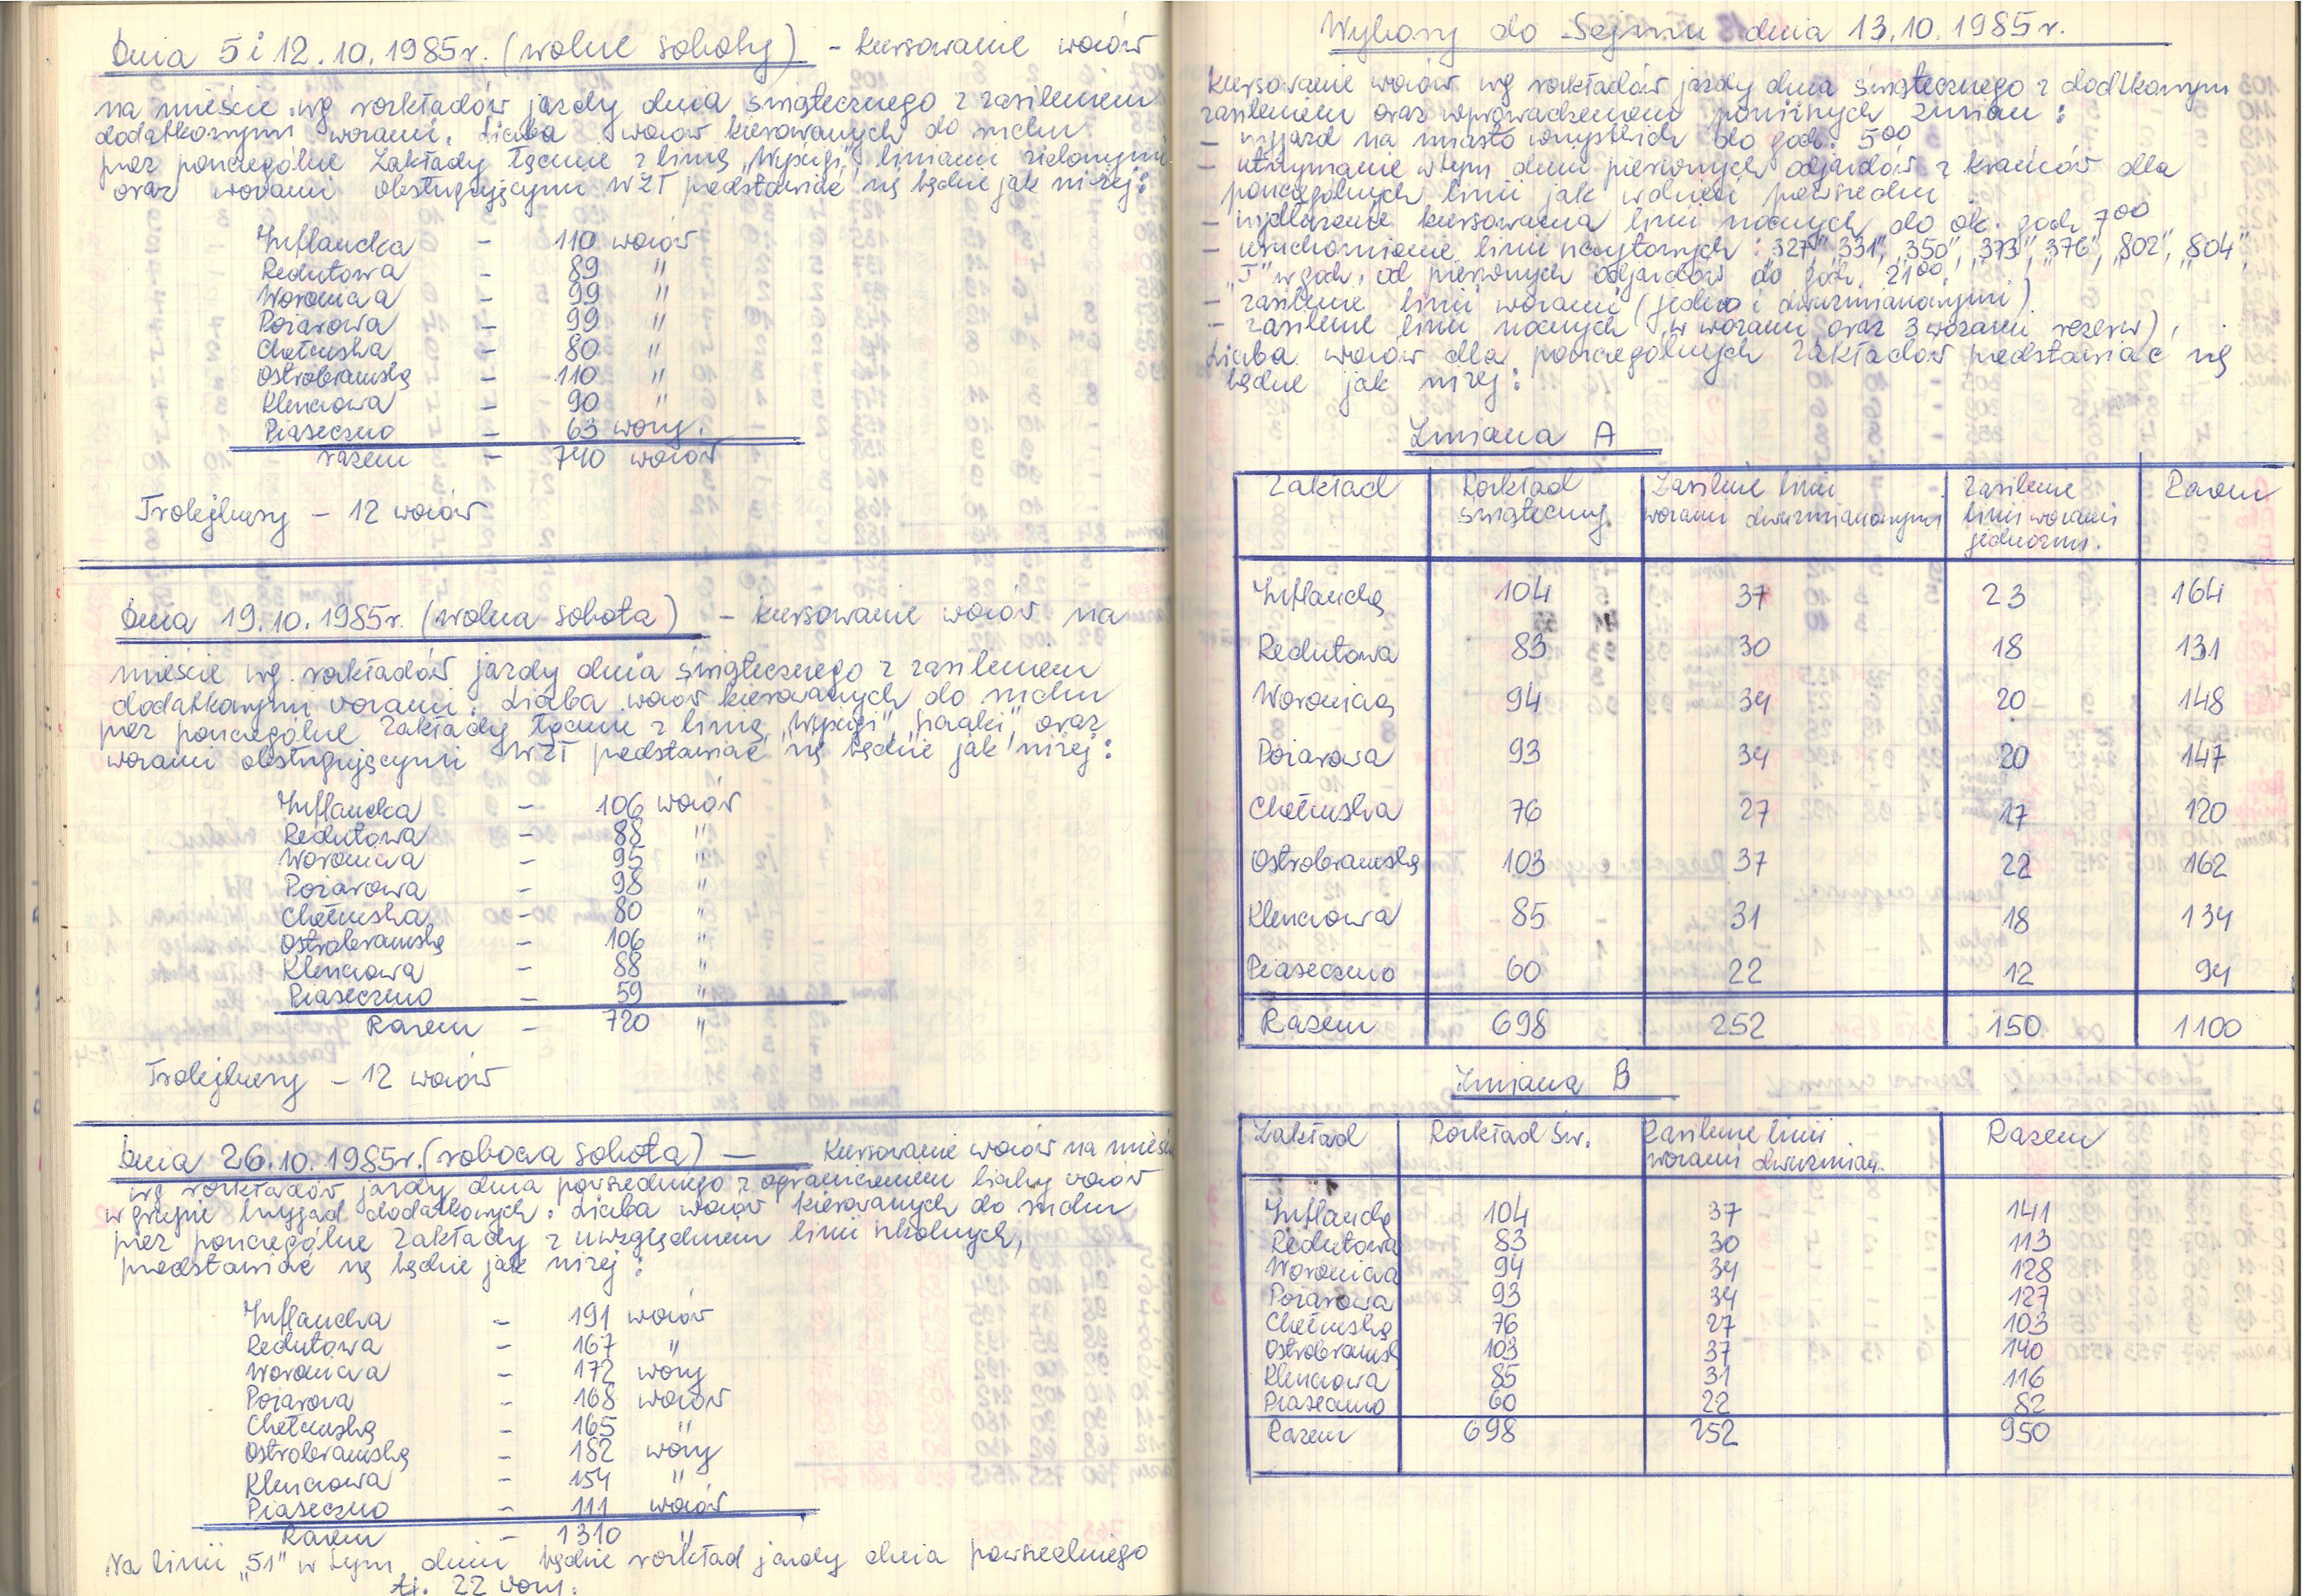 Dnia 5 i 12.10.1985r. (wolne soboty) - kursowanie wozów
na mieście wg rozkładów jazdy dnia świątecznego z zasileniem
dodatkowymi wozami. Liczba wozów kierowanych do ruchu
przez poszczególne Zakłady łącznie z linią „Wyścigi", liniami zielonymi
oraz wozami obsługującymi WZT przedstawiać się będzie jak niżej:
Inflancka - 110 wozów
Redutowa - 89 "
Woronicza - 99 "
Pożarowa - 99 "
Chełmska - 80 "
Ostrobramska - 110 "
Kleszczowa - 90 "
Piaseczno - 63 wozy.
razem - 740 wozów
Trolejbusy - 12 wozów
Dnia 19.10.1985r. (wolna sobota) - kursowanie wozów na
mieście wg. rozkładów jazdy dnia świątecznego z zasileniem
dodatkowymi wozami. Liczba wozów kierowanych do ruchu
przez poszczególne Zakłady łącznie z linią „Wyścigi", oraz
wozami obsługującymi WZT przedstawiać się będzie jak niżej:
Inflancka - 106 wozów
Redutowa - 88 "
Woronicza - 95 "
Pożarowa - 98 "
Chełmska - 80 "
Ostrobramska - 106 "
Kleszczowa - 88 "
Piaseczno - 59 "
Razem - 720 "
Trolejbusy - 12 wozów
Dnia 26.10.1985r. (robocza sobota) - Kursowanie wozów na mieście
wg rozkładów jazdy dnia powszedniego z ograniczeniem liczby wozów
w grupie brygad dodatkowych. Liczba wozów kierowanych do ruchu
przez poszczególne Zakłady z uwzględnieniem linii szkolnych,
przedstawiać się będzie jak niżej:
Inflancka - 191 wozów
Redutowa - 167 "
Woronicza - 172 wozy
Pożarowa - 168 wozów
Chełmska - 165 "
Ostrobramska - 182 wozy
Kleszczowa - 154 "
Piaseczno - 111 wozów
Razem - 1310 "
Na linii „51" w tym dniu będzie rozkład jazdy dnia powszedniego
tj. 22 wozy.
Wybory do Sejmu dnia 13.10.1985r.
Kursowanie wozów wg rozkładów jazdy dnia świątecznego z dodatkowym
zasileniem oraz wprowadzeniem poniższych zmian:
- wyjazd na miasto wszystkich do godz. 5⁰⁰
- utrzymanie w tym dniu pierwszych odjazdów z krańców dla
poszczególnych linii jak w dzień powszedni
- wydłużenie kursowania linii nocnych do ok. godz. 7⁰⁰
- uruchomienie linii szczytowych: „327", „331", „350", „373", „376", „802", „804",
„J" w godz. od pierwszych odjazdów do godz. 21⁰⁰
- zasilenie linii wozami (jedno i dwuzmianowymi).
- zasilenie linii nocnych ( wozami oraz 3 wozami rezerw),
Liczba wozów dla poszczególnych Zakładów przedstawiać się
będzie jak niżej:
Zmiana A
Zakład Rozkład świąteczny. Zasilenie linii wozami dwuzmianowymi Zasilenie linii wozami jednozm. Razem
Inflancka 104 37 23 164
Redutowa 83 30 18 131
Woronicza 94 34 20 148
Pożarowa 93 34 20 147
Chełmska 76 27 17 120
Ostrobramska 103 37 22 162
Kleszczowa 85 31 18 134
Piaseczno 60 22 12 94
Razem 698 252 150 1100
Zmiana B
Zakład Rozkład św. Zasilenie linii wozami dwuzmian. Razem
Inflancka 104 37 141
Redutowa 83 30 113
Woronicza 94 34 128
Pożarowa 93 34 127
Chełmska 76 27 103
Ostrobramsk 103 37 140
Kleszczowa 85 31 116
Piaseczno 60 22 82
Razem 698 252 950